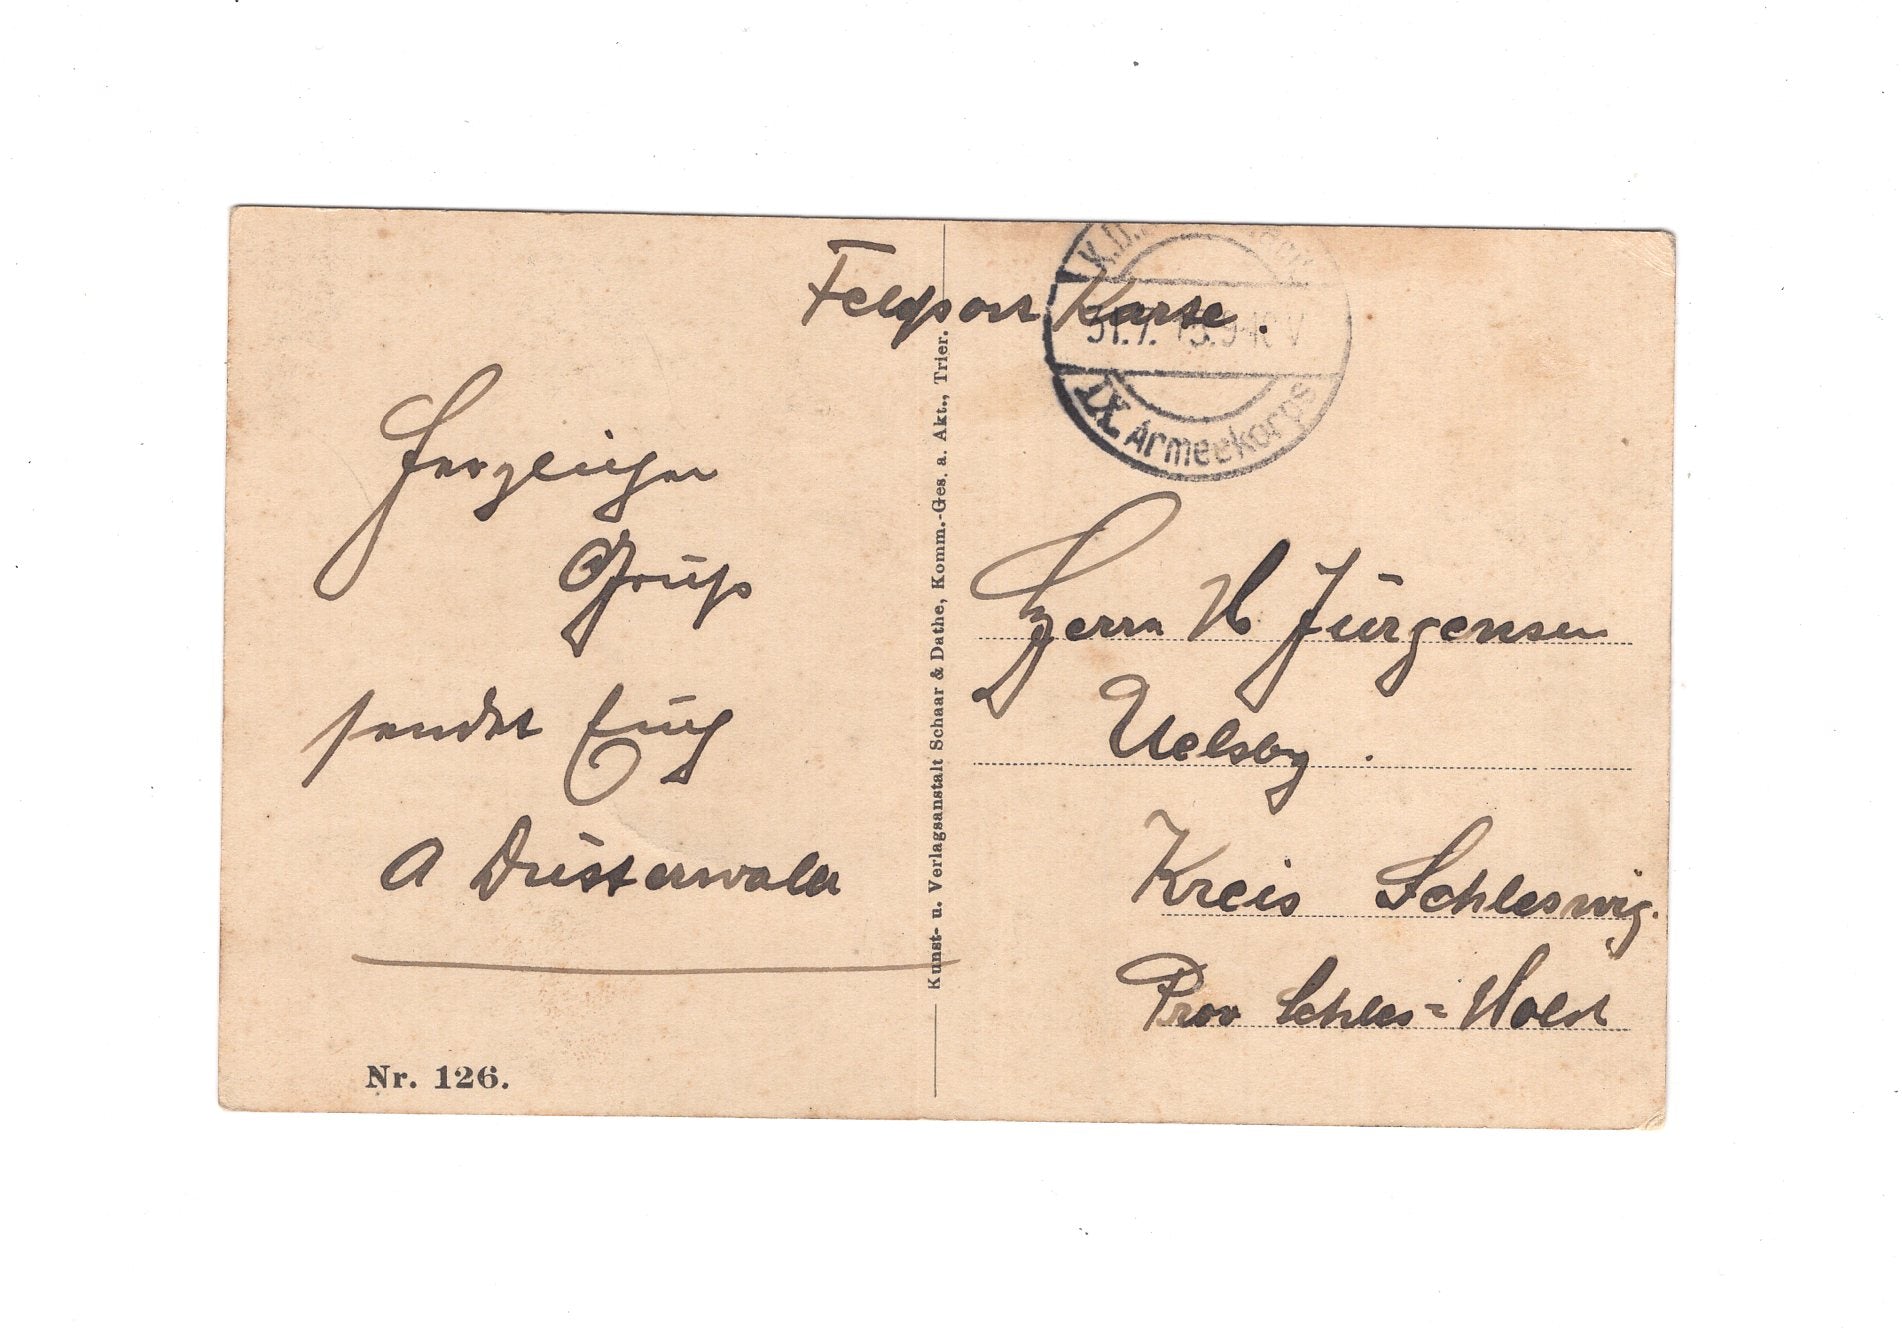 Feldpost Karte.
31.7.15.9-10V
IX. Armeekorps
Herzlichen
Gruß
sendet Euch
A Düsterwald
Nr. 126.
Kunst- u. Verlagsanstalt Schaar & Dathe, Komm.-Ges. a. Akt., Trier.
Herrn H Jürgensen
Uelsby.
Kreis Schleswig.
Prov Schles=Holst